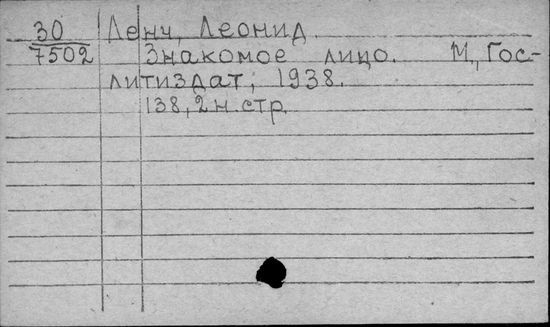 30 Ленч, Леонид.
7502 Знакомое лицо. М., Гос-
литиздат, 1938.
138, 2 н. стр.